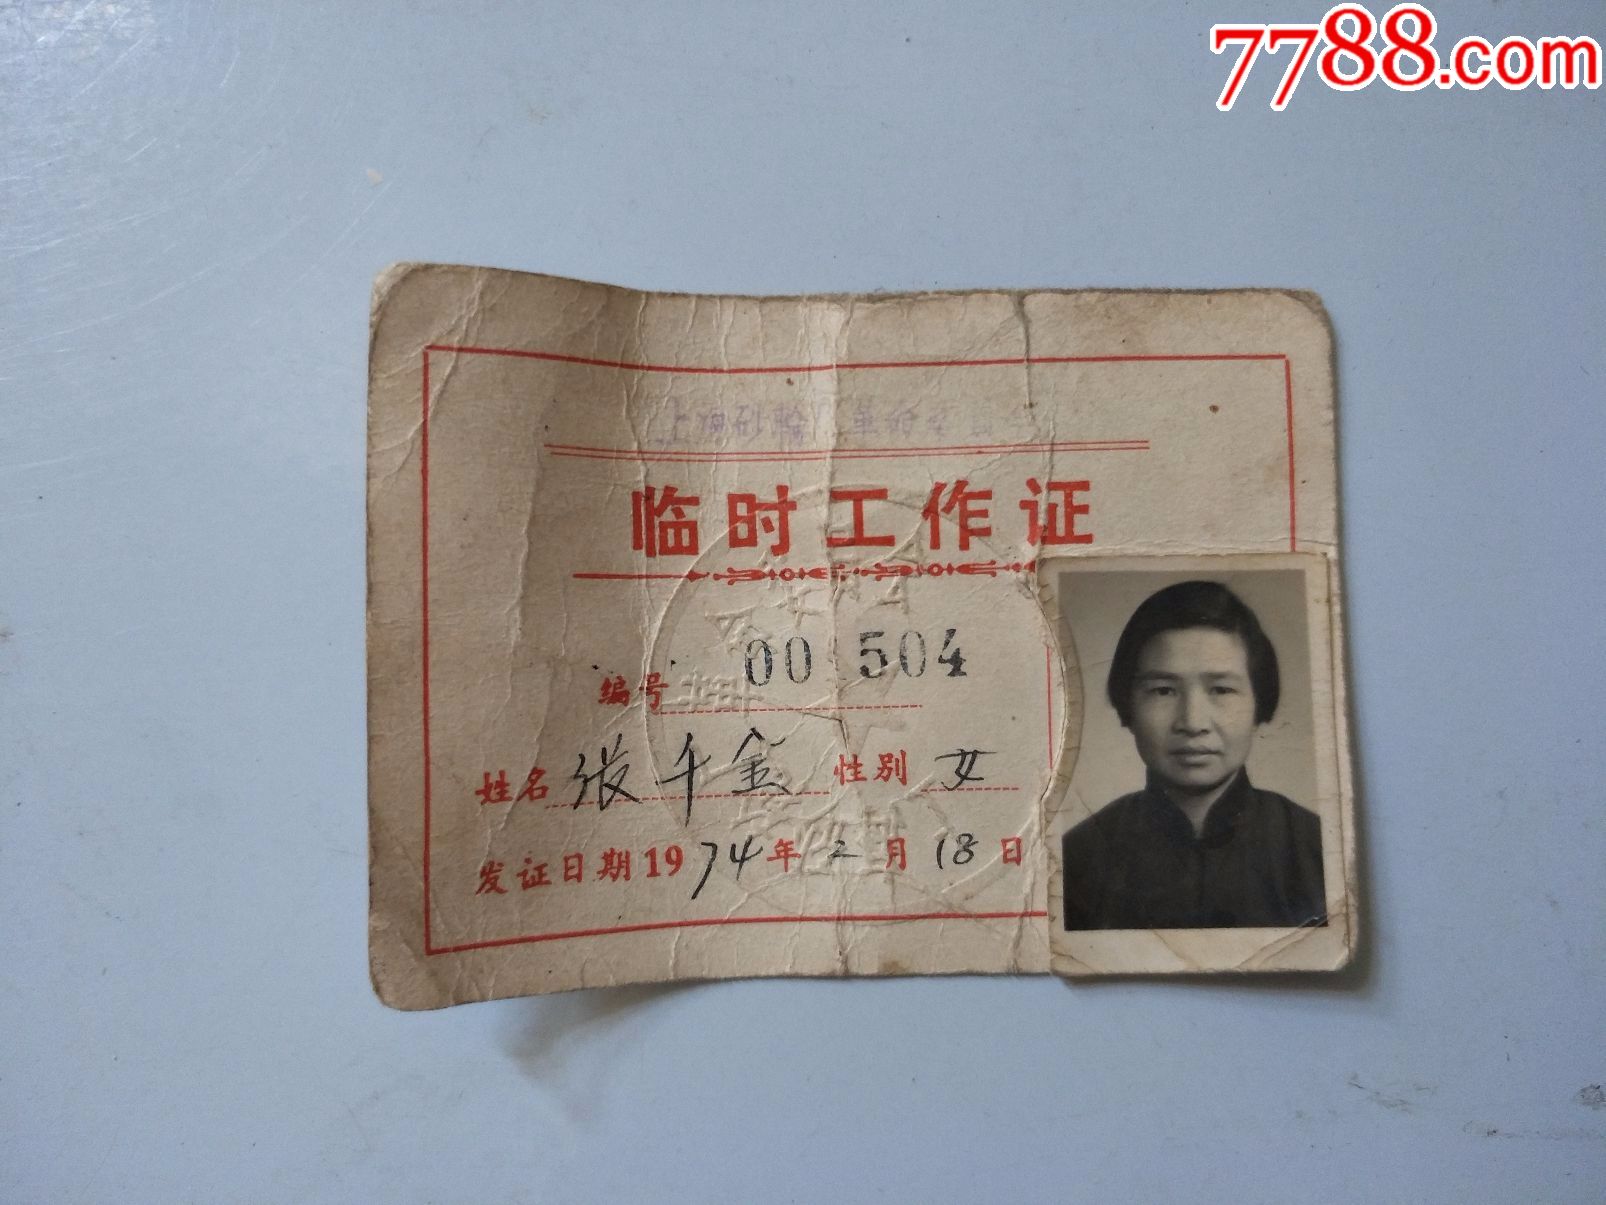 7788.com
上海砂轮厂革命委员会
临时工作证
编号 00504
姓名 张千金 性别 女
发证日期1974年2月18日